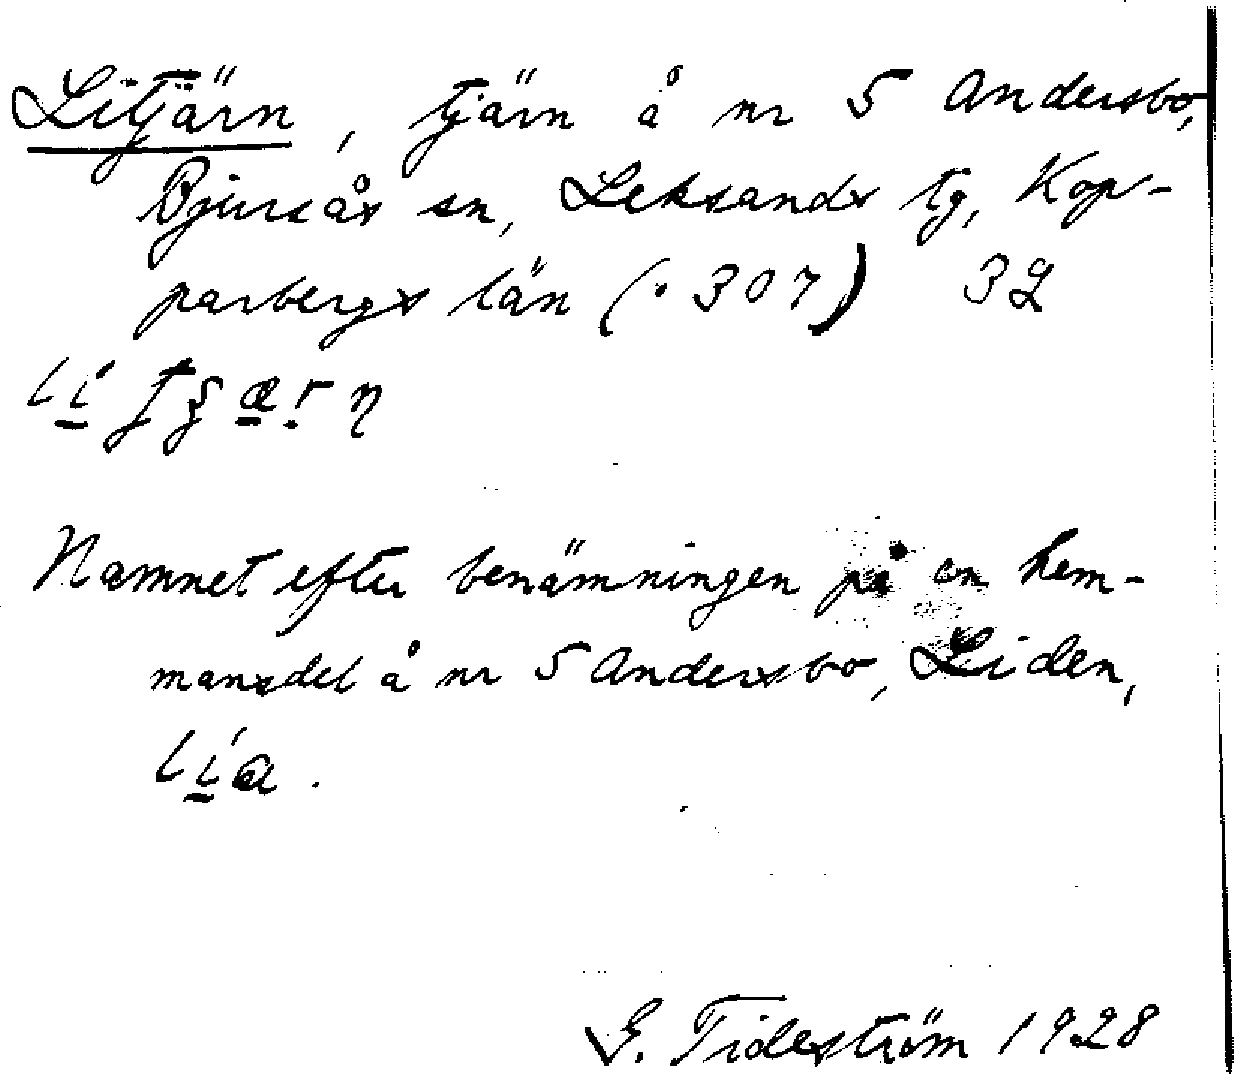 Litjärn, tjärn å nr 5 Andersbo,
Bjursås sn, Leksands tg, Kop-
parbergs län (. 307) 32
Namnet efter benämningen på en hem-
mansdel å nr 5 Andersbo, Liden,
lia.
G. Tideström 1928